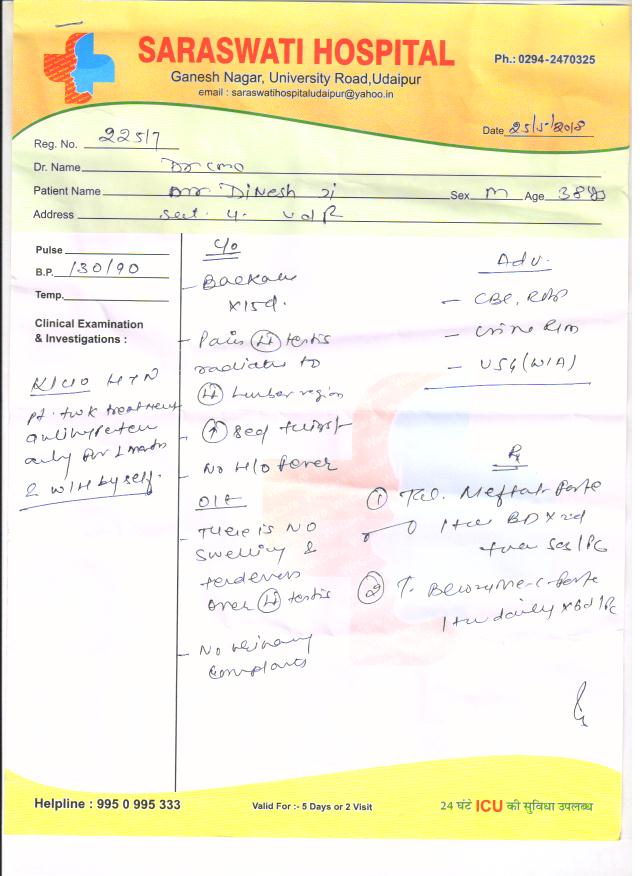 SARASWATI HOSPITAL
Ganesh Nagar, University Road,Udaipur
email : saraswatihospitaludaipur@yahoo.in
Ph.: 0294-2470325
Date 25/5/2018
Reg. No. 22517
Dr. Name Dr CMO
Patient Name Mr Dinesh Ji Sex M Age 38
Address Sect. 4. UdR
Pulse
B.P. 130/90
Temp.
Clinical Examination
& Investigations :
K/C/O HTN
pt. took treatment
only for 1 month
by self.
C/o
Backache
x15d.
- Pain testis
radiates to
lumbar region
No H/O fever
O/E
- There is NO
swelling &
tenderness
over testis
- No urinary
complaints
Adv.
- CBC, RBS
- Urine R/M
- USG (W/A)
Rx
① Tab. Meftal-Forte
1 tab BD x
② T. Becozyme-C-Forte
1 daily
Helpline : 995 0 995 333
Valid For :- 5 Days or 2 Visit
24 घंटे ICU की सुविधा उपलब्ध